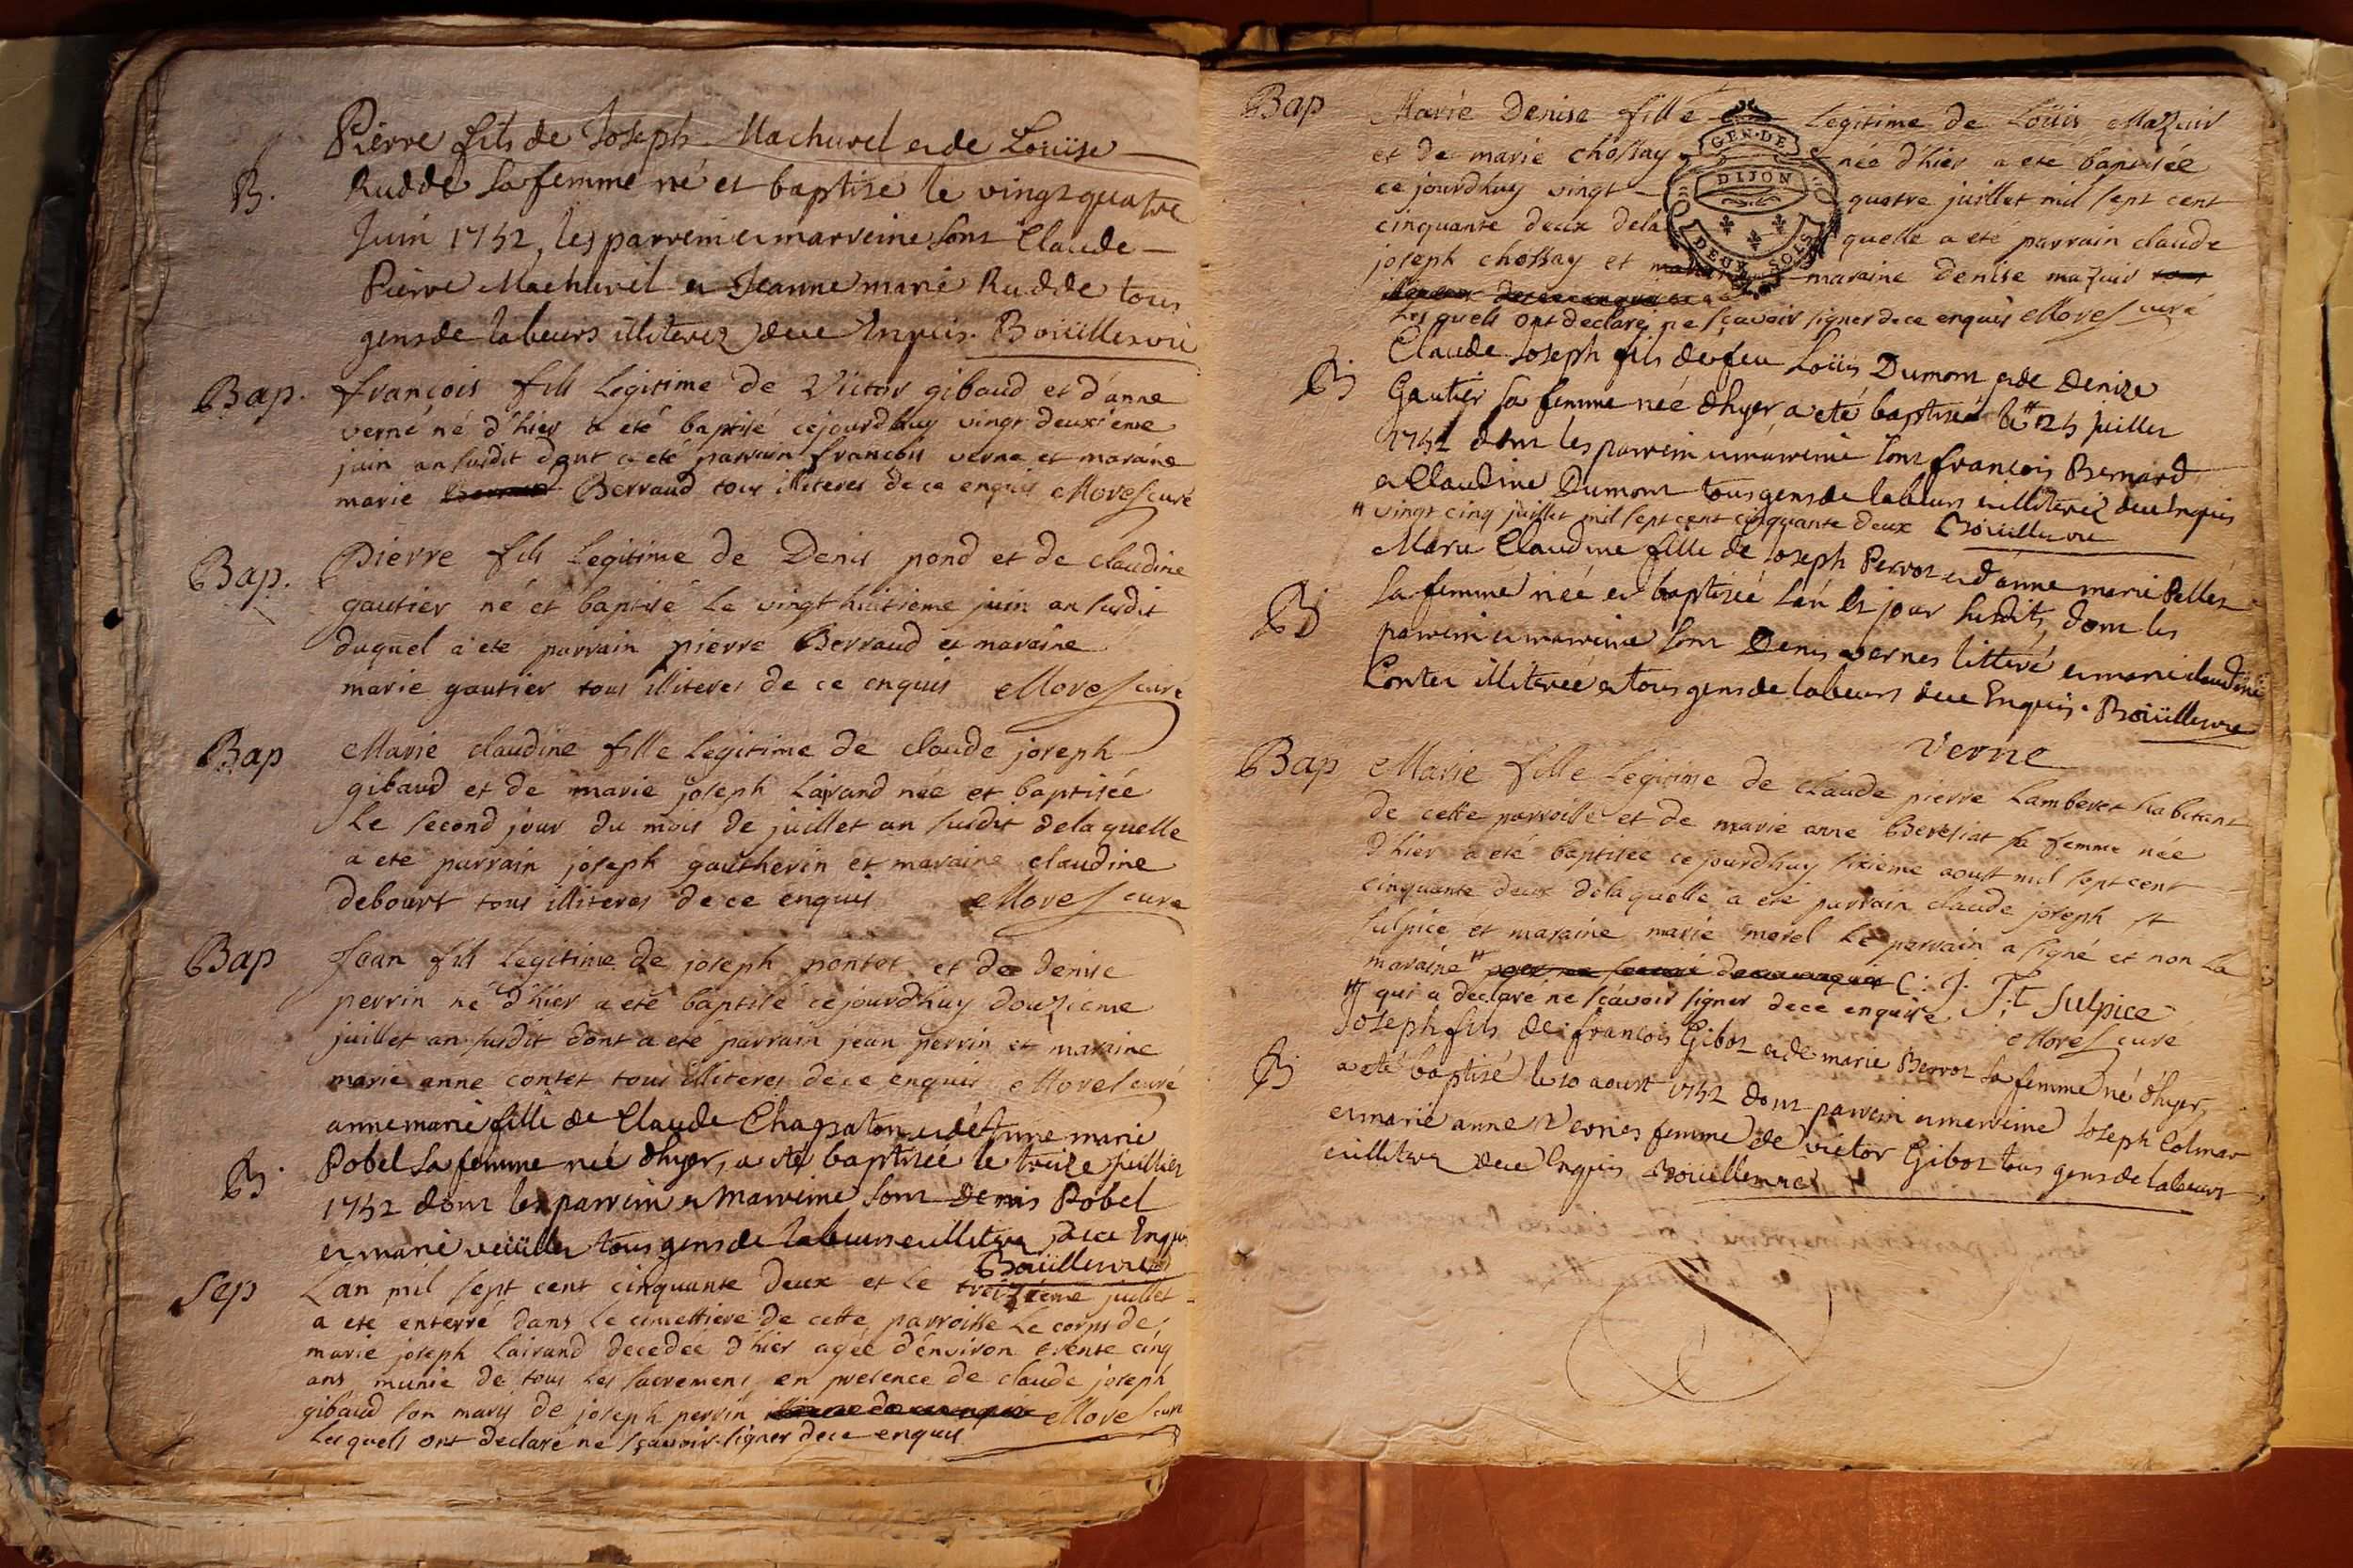 Pierre fils de Joseph Machurel et de Loüise
B. Rudde sa femme né et baptisé le vingt quatre
Juin 1752, les parrein et marreine sont Claude
Pierre Machurel et Jeanne marie Rudde tous
gens de labeurs illiterez de ce Enquis. Boüillerme
Bap. françois fils legitime de Victor gibaud et d'anne
verne né d'hier a eté baptisé cejourdhuy vingt deuxième
juin an susdit dont a eté parrain françois verne et maraine
marie Berraud tous illiteres de ce enquis Morel curé
Bap. Pierre fils legitime de Denis pond et de claudine
gautier né et baptisé le vingt huitieme juin an susdit
duquel a eté parrain pierre Berraud et maraine
marie gautier tous illiteres de ce enquis Morel curé
Bap Marie claudine fille legitime de claude joseph
gibaud et de marie joseph Lairand née et baptisée
Le second jour du mois de juillet an susdit de la quelle
a eté parrain joseph gautherin et maraine claudine
debourt tous illiteres de ce enquis Morel curé
Bap Jean fils legitime de joseph pontet et de denise
perrin né d'hier a eté baptisé cejourdhuy douzieme
juillet an susdit dont a eté parrain jean perrin et maraine
marie anne contet tous illiteres de ce enquis Morel curé
anne marie fille de Claude Chapaton et d'Anne marie
B. Pobel sa femme née d'hyer, a eté baptisée le treize juillier
1752 dont les parrein et Marreine sont Denis Pobel
et marie veüiller tous gens de labeurs et illiterez de ce Enquis
Boüillerme
Sep Lan mil sept cent cinquante deux et le treizieme juillet
a eté enterré dans le cimettiere de cette parroisse le corps de
marie joseph Lairand decedée d'hier agée d'environ trente cinq
ans munie de tous les sacremens en presence de claude joseph
gibaud son mary de joseph perrin Morel curé
Lesquels ont declaré ne sçavoir signer de ce enquis
Bap Marie Denise fille legitime de Loüis Mazuir
et de marie chossay née d'hier a eté baptisée
ce jourdhuy vingt quatre juillet mil sept cent
cinquante deux de la quelle a eté parrain claude
joseph chossay et maraine denise mazuir
GEN·DE
DIJON
DEUX SOLS
Lesquels ont declaré ne sçavoir signer de ce enquis Morel curé
Claude Joseph fils de feu Loüis Dumont et de Denize
B. Gautier sa femme née d'hyer a eté baptisé le # 25 juillet
1752 dont les parrein et marreine sont françois Bernard
et Claudine Dumont tous gens de labeurs et illiterez de ce Enquis
# vingt cinq juillet mil sept cent cinquante deux Boüillerme
Marie Claudine fille de Joseph Perrot et d'anne marie Pellez
B. sa femme née et baptisée l'an et jour susdits, dont les
parrein et marreine sont Denis vernes litteré et marie claudine
Contet illiterée et tous gens de labeurs de ce Enquis. Boüillerme
Verne
Bap Marie fille legitime de claude pierre Lamberet habitant
de cette parroisse et de marie anne Bereziat sa femme née
d'hier a eté baptisée ce jourdhuy sixieme aoust mil sept cent
cinquante deux de la quelle a eté parrain claude joseph st
sulpice et maraine marie morel le parrain a signé et non la
maraine # C: J. St Sulpice
# qui a declaré ne sçavoir signer de ce enquise
Morel curé
Joseph fils de françois Gibot et de marie Berrot sa femme né d'hyer,
B. a eté baptisé le 10 aoust 1752 dont parrein et marreine Joseph Colmar
et marie anne Vernes femme de victor Gibot tous gens de labeurs
et illiterez de ce Enquis Boüillerme